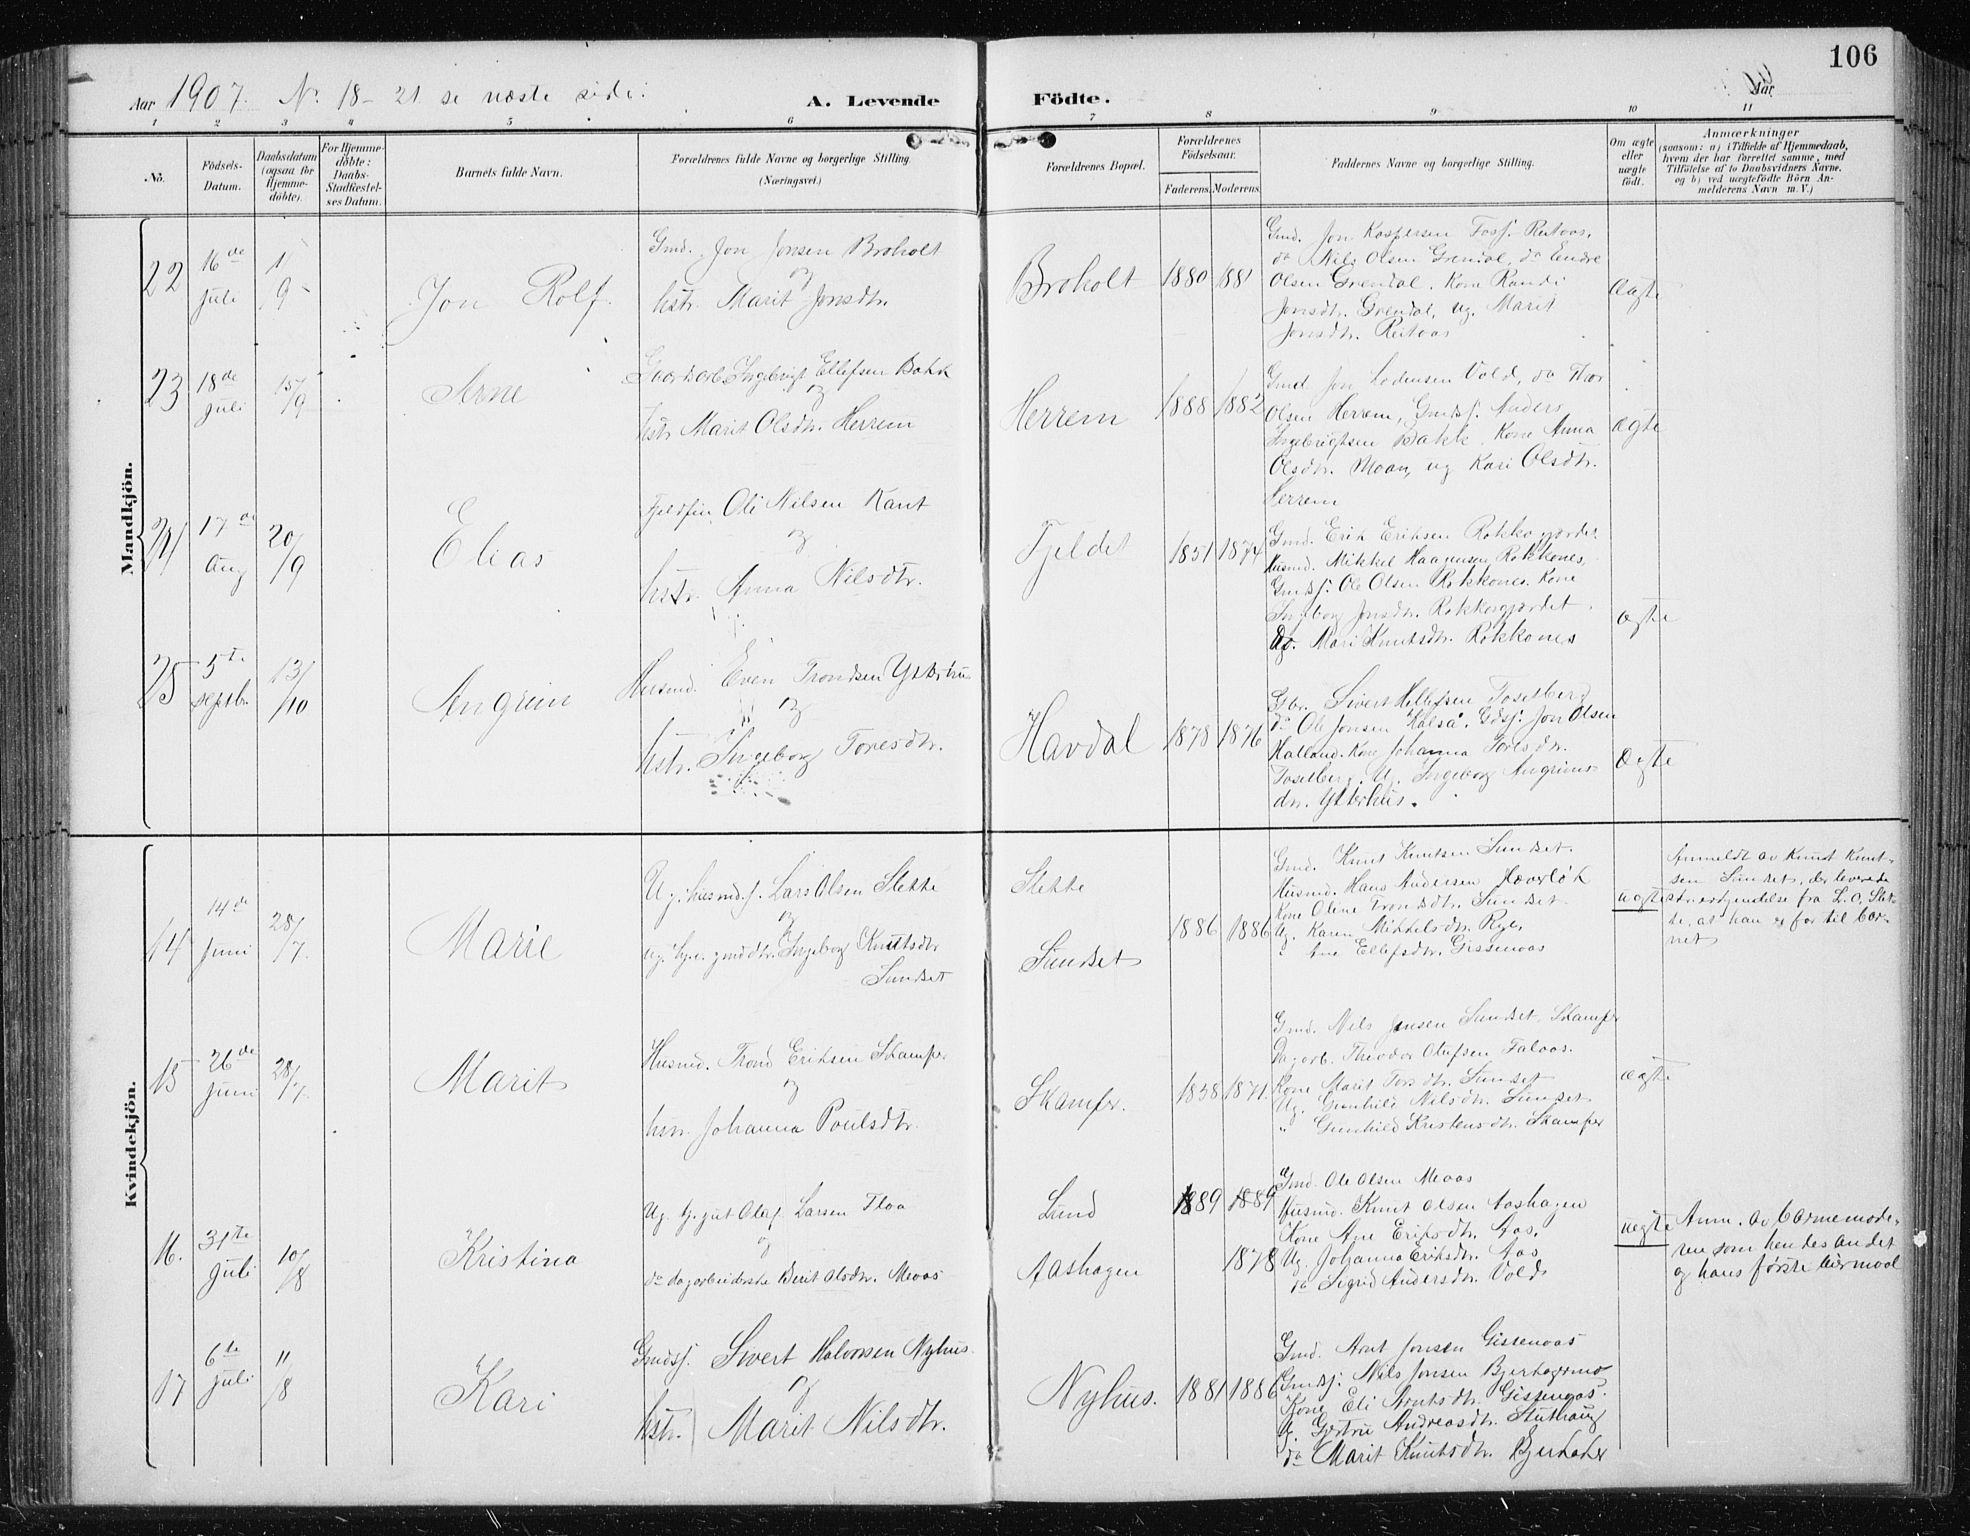 106
Aar 1907. No. 18-21 se næste side.
A. Levende Födte.
Aar
1 2 3 4 5 6 7 8 9 10 11
No.
Födsels-Datum.
Daabsdatum (ogsaa for Hjemme-döbte).
For Hjemme-döbte: Daabs-Stadfæstel-ses Datum.
Barnets fulde Navn.
Forældrenes fulde Navne og borgerlige Stilling. (Næringsvei.)
Forældrenes Bopæl.
Forældrenes Födselsaar.
Faderens. Moderens.
Faddernes Navne og borgerlige Stilling.
Om ægte eller uægte födt.
Anmærkninger
(saasom: a) i Tilfælde af Hjemmedaab, hvem der har forrettet samme, med Tilföielse af to Daabsvidners Navne. og b) ved uægtefödte Börn An-melderens Navn m. V.)
Mandkjön.
22 16de juli 1/9 Jon Rolf.
Gmd. Jon Jonsen Broholt
og
hstr. Marit Jonsdtr.
Broholt 1880 1881
Gmd. Jon Kaspersen
do Nils Olsen Grendal, do Endre
Olsen Grendal. Kone Randi
Jonsdtr. Grendal, ug. Marit
Jonsdtr.
ægte
23 18de juli 15/9 Arne
Ingebrigt Ellefsen Bakk
og
hstr. Marit Olsdtr. Herrem
Herrem 1888 1882
Gmd Jon Lodensen Vold, do Thor
Olsen Herrem, Gmdsf. Anders
Ingebrigtsen Bakk. Kone Anna
Olsdtr. Moan, ug Kari Olsdtr.
Herrem
ægte
24 17de Aug 20/9 Elias
Oli Nilsen Kant
og
hstr. Anna Nilsdtr.
Fjeldet 1851 1874
Gmd. Erik Eriksen
Husmd. Mikkel Haagensen Rokkones,
Gmdsf. Ole Olsen Rokkones. Kone
Ingeborg Jonsdtr. Rokkogjærdet.
Ug. Mari Knutsdtr. Rokkones
ægte
25 5te septbr. 13/10 Angrim
Husmd. Even Trondsen Ytterhus
og
hstr. Ingeborg Toresdtr.
Havdal 1878 1876
Gbr. Sivert Hellefsen Toselberg
do Ole Jonsen Kalså. Gdsf. Jon Olsen
Halland. Kone Johanna Toresdtr.
Toselberg. U. Ingeborg Angrims-
dtr. Ytterhus.
ægte
Kvindekjön.
14 14de juni 28/7 Marie
Ug. husmdsf. Lars Olsen Slette
og
gmddtr. Ingeborg Knutsdtr.
Sundset
Slette
Sundset 1886 1886
Gmd. Knut Knutsen Sundset.
Husmd. Hans Andersen
Kone Oline Trondsdtr. Sundset.
Ug. Karen Mikkelsdtr. Rye.
" Ane Ellefsdtr. Gissenaas
uægte
Anmeldt av Knut Knut-
sen Sundset, der leverede
fra L. O. Slet-
te, at han er far til bar-
net
15 26de juni 28/7. Marit
Husmd. Trond Eriksen Skamfer
og
hstr. Johanna Poulsdtr.
Skamfer. 1858 1871.
Gmd. Nils Jonsen Sundset, Skamfer
Dagarb. Theodor Olufsen Falaas.
Kone Marit Torsdtr. Sundset
Ug. Gunhild Nilsdtr. Sundset.
" Gunhild Kristensdtr. Skamfer
ægte
16. 31te juli 10/8 Kristina
Ug. gut Olaf Larsen Floa
og
do dagarbeiderske Berit Olsdtr. Meaas
Lund 1889 1889
Aashagen 1878
Gmd. Ole Olsen Meaas
Husmd. Knut Olsen Aashagen
Kone Ane Eriksdtr. Aas.
Ug. Johanna Eriksdtr. Aas
do Sigrid Andersdtr. Vold
uægte
Anm. av barnemode-
ren som hendes andet
og hans første leiermaal
17 6te juli 11/8 Kari
Gmdsf. Sivert Halvorsen Nyhus.
og
hstr. Marit Nilsdtr.
Nyhus. 1881 1886
Gmd. Arnt Jonsen Gissenaas
Gmdsf. Nils Jonsen
Kone Eli Arntsdtr. Gissenaas.
U. Gjertru Andreasdtr. Stuthaug
do Marit Knutsdtr.